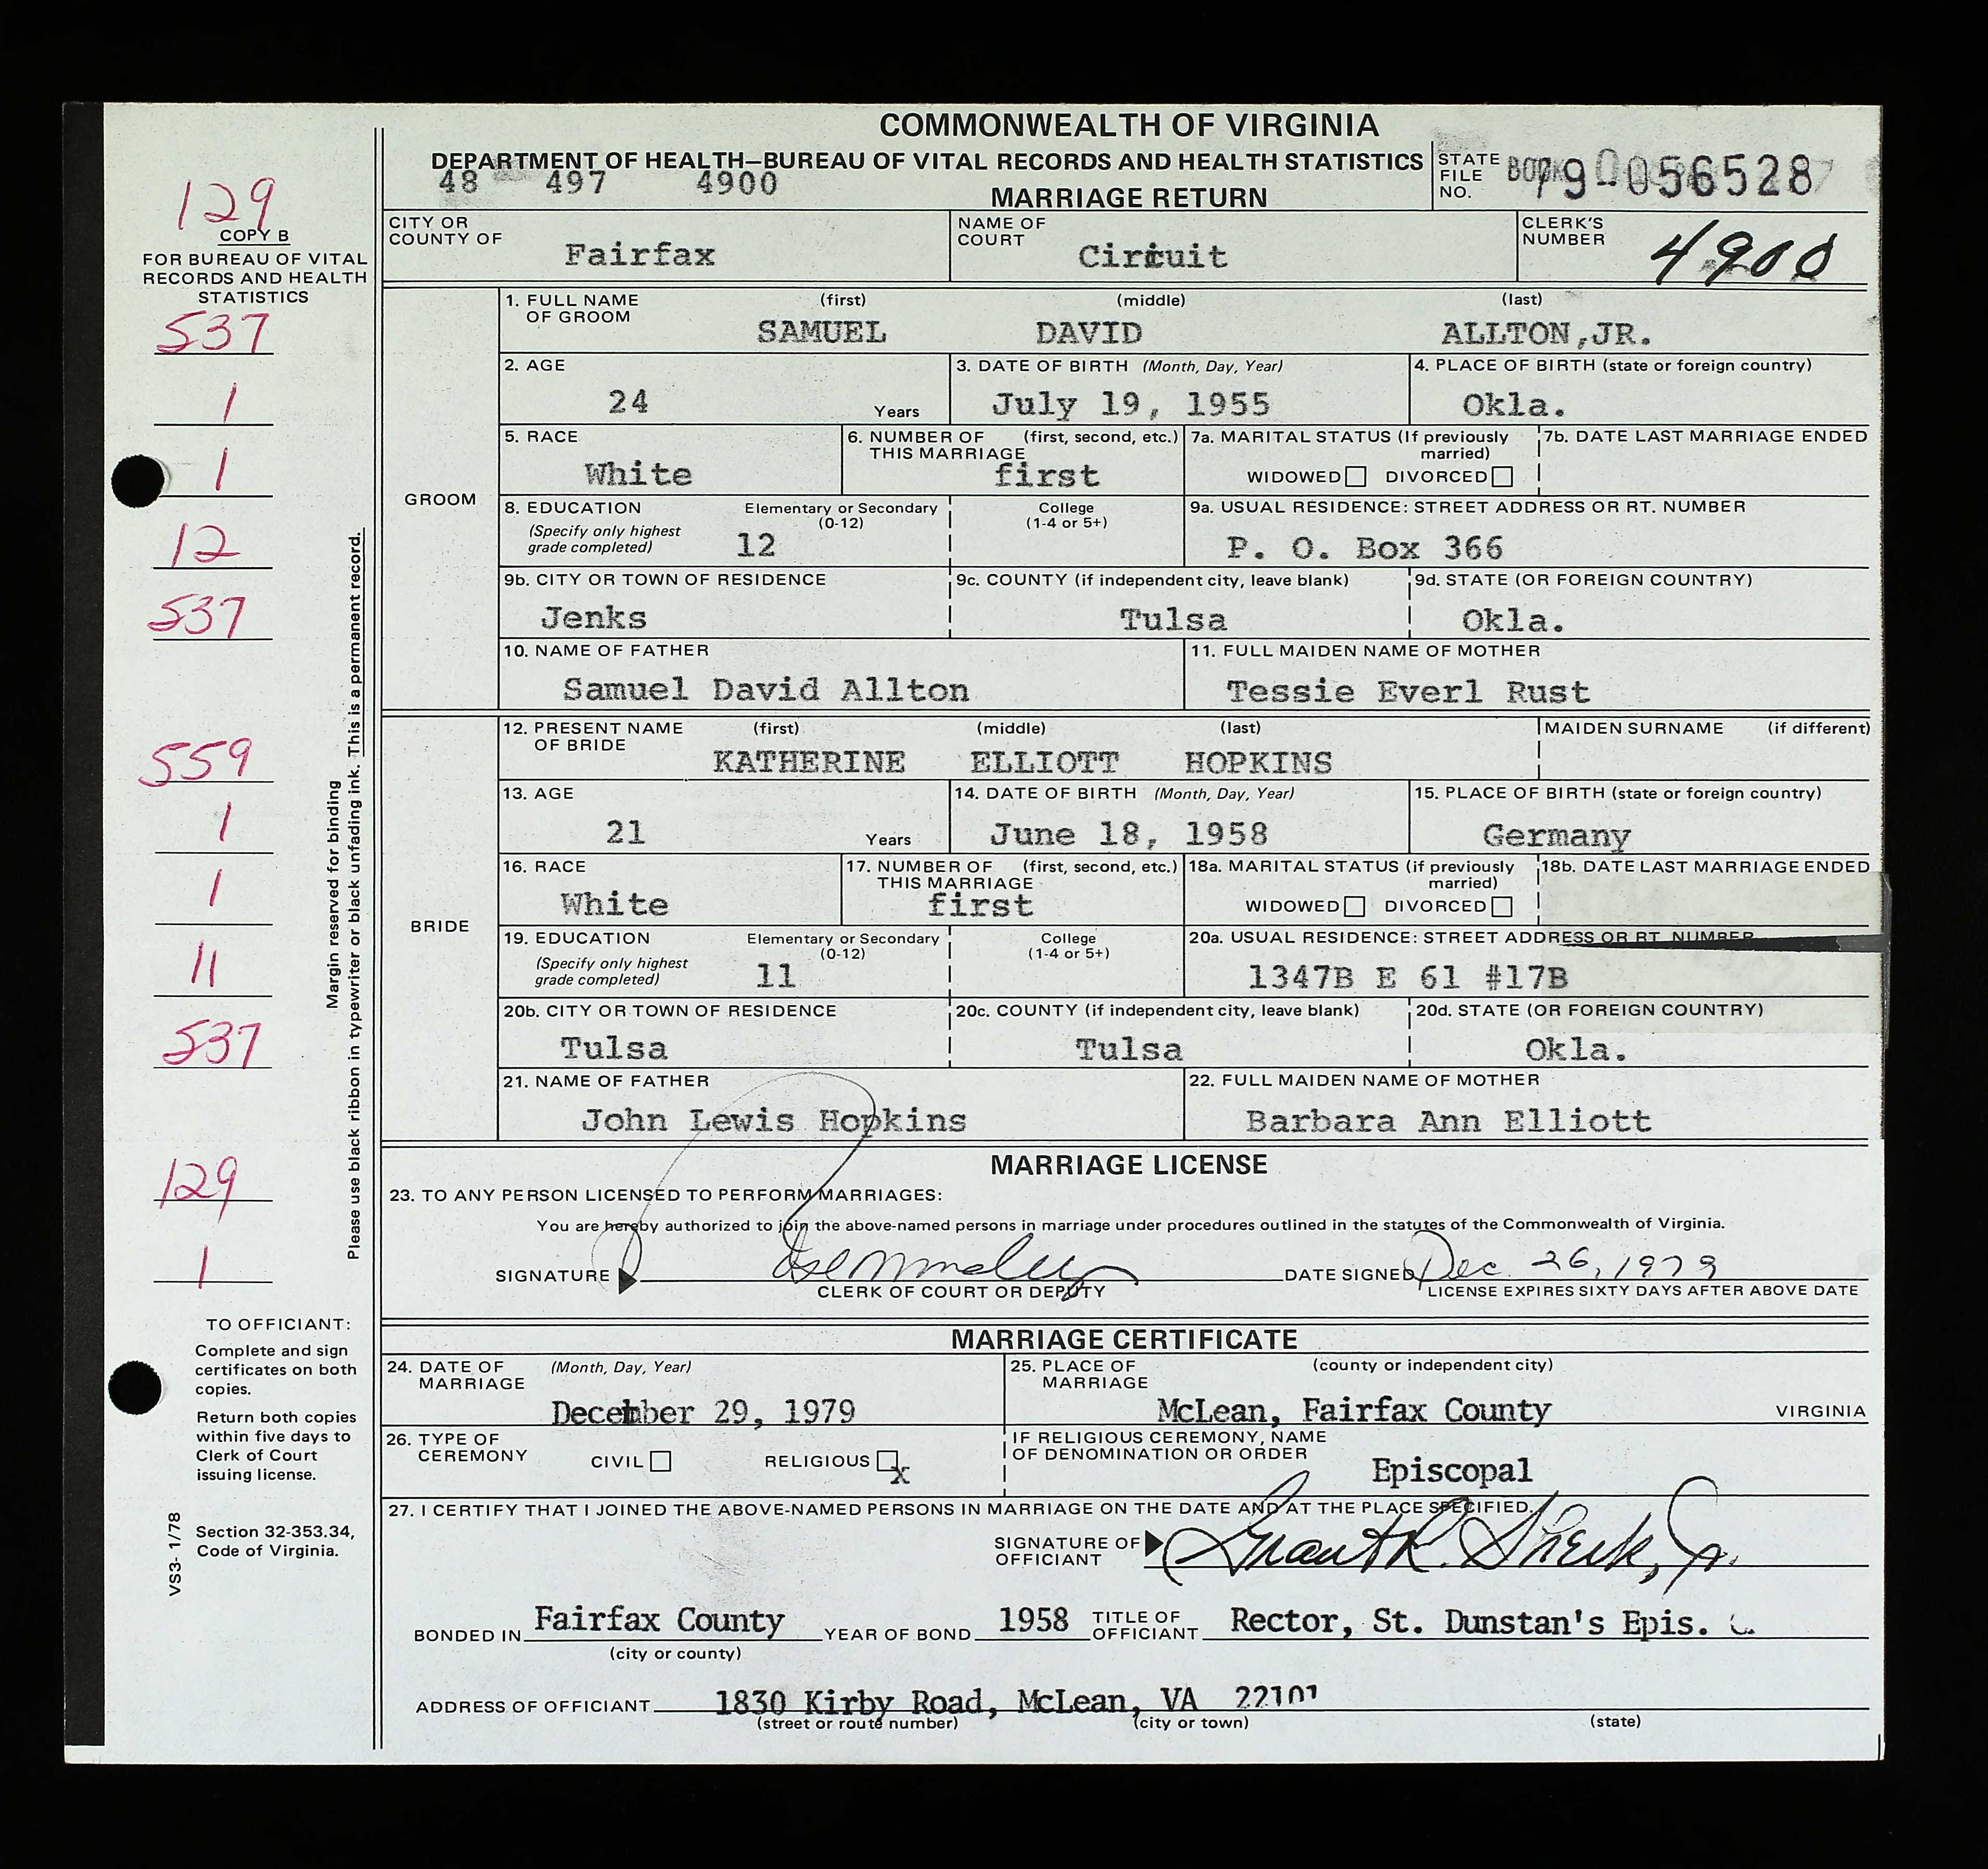 COMMONWEALTH OF VIRGINIA
DEPARTMENT OF HEALTH—BUREAU OF VITAL RECORDS AND HEALTH STATISTICS
48 497 4900
MARRIAGE RETURN
STATE FILE NO. 79-056528
129
COPY B
FOR BUREAU OF VITAL
RECORDS AND HEALTH
STATISTICS
537
1
1
12
537
559
1
1
11
537
129
1
Margin reserved for binding
Please use black ribbon in typewriter or black unfading ink. This is a permanent record.
TO OFFICIANT:
Complete and sign
certificates on both
copies.
Return both copies
within five days to
Clerk of Court
issuing license.
Section 32-353.34,
Code of Virginia.
VS3- 1/78
CITY OR COUNTY OF Fairfax
NAME OF COURT Circuit
CLERK'S NUMBER 4900
GROOM
1. FULL NAME OF GROOM (first) (middle) (last)
SAMUEL DAVID ALLTON,JR.
2. AGE 24 Years
3. DATE OF BIRTH (Month, Day, Year) July 19, 1955
4. PLACE OF BIRTH (state or foreign country) Okla.
5. RACE White
6. NUMBER OF THIS MARRIAGE (first, second, etc.) first
7a. MARITAL STATUS (If previously married) WIDOWED DIVORCED
7b. DATE LAST MARRIAGE ENDED
8. EDUCATION (Specify only highest grade completed) Elementary or Secondary (0-12) 12
College (1-4 or 5+)
9a. USUAL RESIDENCE: STREET ADDRESS OR RT. NUMBER
P. O. Box 366
9b. CITY OR TOWN OF RESIDENCE Jenks
9c. COUNTY (if independent city, leave blank) Tulsa
9d. STATE (OR FOREIGN COUNTRY) Okla.
10. NAME OF FATHER Samuel David Allton
11. FULL MAIDEN NAME OF MOTHER Tessie Everl Rust
BRIDE
12. PRESENT NAME OF BRIDE (first) (middle) (last)
KATHERINE ELLIOTT HOPKINS
MAIDEN SURNAME (if different)
13. AGE 21 Years
14. DATE OF BIRTH (Month, Day, Year) June 18, 1958
15. PLACE OF BIRTH (state or foreign country) Germany
16. RACE White
17. NUMBER OF THIS MARRIAGE (first, second, etc.) first
18a. MARITAL STATUS (if previously married) WIDOWED DIVORCED
18b. DATE LAST MARRIAGE ENDED
19. EDUCATION (Specify only highest grade completed) Elementary or Secondary (0-12) 11
College (1-4 or 5+)
20a. USUAL RESIDENCE: STREET ADDRESS OR RT. NUMBER
1347B E 61 #17B
20b. CITY OR TOWN OF RESIDENCE Tulsa
20c. COUNTY (if independent city, leave blank) Tulsa
20d. STATE (OR FOREIGN COUNTRY) Okla.
21. NAME OF FATHER John Lewis Hopkins
22. FULL MAIDEN NAME OF MOTHER Barbara Ann Elliott
MARRIAGE LICENSE
23. TO ANY PERSON LICENSED TO PERFORM MARRIAGES:
You are hereby authorized to join the above-named persons in marriage under procedures outlined in the statutes of the Commonwealth of Virginia.
SIGNATURE
DATE SIGNED Dec 26, 1979
CLERK OF COURT OR DEPUTY
LICENSE EXPIRES SIXTY DAYS AFTER ABOVE DATE
MARRIAGE CERTIFICATE
24. DATE OF MARRIAGE (Month, Day, Year) December 29, 1979
25. PLACE OF MARRIAGE (county or independent city) McLean, Fairfax County VIRGINIA
26. TYPE OF CEREMONY CIVIL RELIGIOUS x
IF RELIGIOUS CEREMONY, NAME OF DENOMINATION OR ORDER Episcopal
27. I CERTIFY THAT I JOINED THE ABOVE-NAMED PERSONS IN MARRIAGE ON THE DATE AND AT THE PLACE SPECIFIED.
SIGNATURE OF OFFICIANT Grant R. Sherk, Jr.
BONDED IN Fairfax County YEAR OF BOND 1958 TITLE OF OFFICIANT Rector, St. Dunstan's Epis.
(city or county)
ADDRESS OF OFFICIANT 1830 Kirby Road, McLean, VA 22101
(street or route number) (city or town) (state)